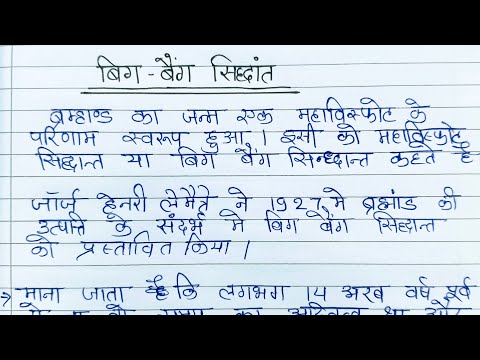 बिग - बैंग सिद्धांत
ब्रम्हाण्ड का जन्म एक महाविस्फोट के
परिणाम स्वरूप हुआ । इसी को महाविस्फोट
सिद्धान्त या बिग बैंग सिन्द्धान्त कहते है
जॉर्ज हेनरी लेमैत्रे ने 1927 मे ब्रह्मांड की
उत्पत्ति के संदर्भ मे बिग बैंग सिद्धान्त
को प्रस्तावित किया ।
→ माना जाता है कि लगभग 14 अरब वर्ष पूर्व